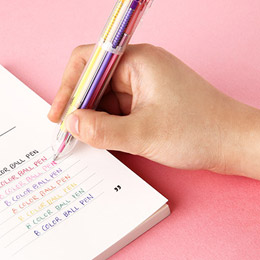 COLOR BALL PEN
COLOR BALL PEN
COLOR BALL PEN
B COLOR BALL PEN
A COLOR BALL PEN
B COLOR BALL PEN
B COLOR BALL PEN
B COLOR BALL PEN
”